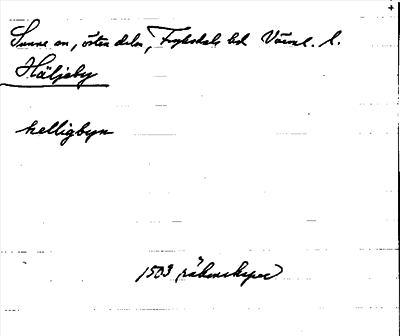 Sunne sn, östra delen, Fryksdals hd Värml. l.
Häljeby
helligbyn
1503 räkenskaper